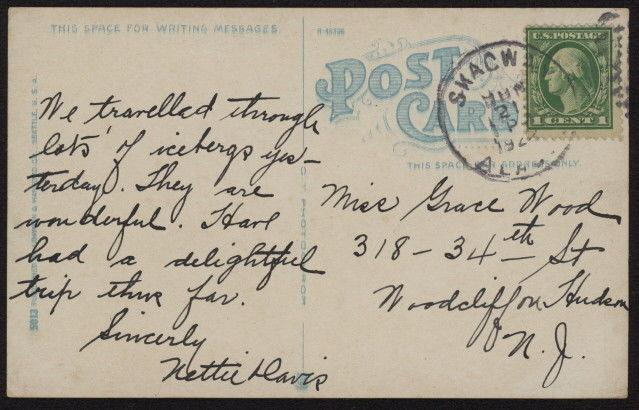 THIS SPACE FOR WRITING MESSAGES
POST CARD
THIS SPACE FOR ADDRESS ONLY.
U.S. POSTAGE
1 CENT 1
SKAGW
JUN
21
192
ALA
We travelled through
lots of icebergs yes-
terday. They are
wonderful. Have
had a delightful
trip thus far.
Sincerly
Nettie Davis
Miss Grace Wood
318-34th St
Woodcliff on Hudson
N. J.